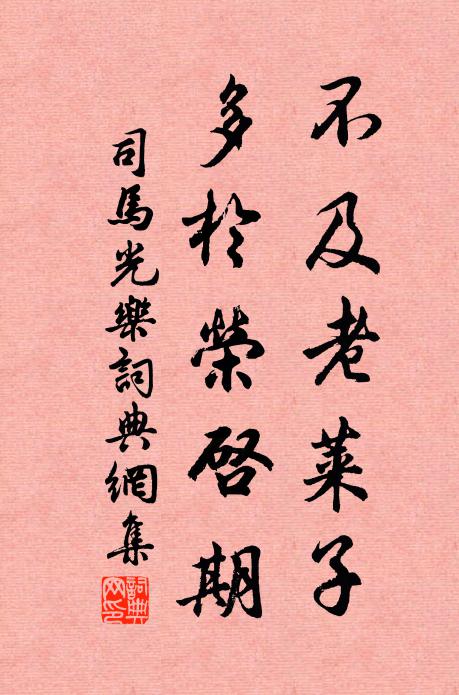 不及老萊子
多於榮啓期
司馬光樂詞典網集
詞典网印